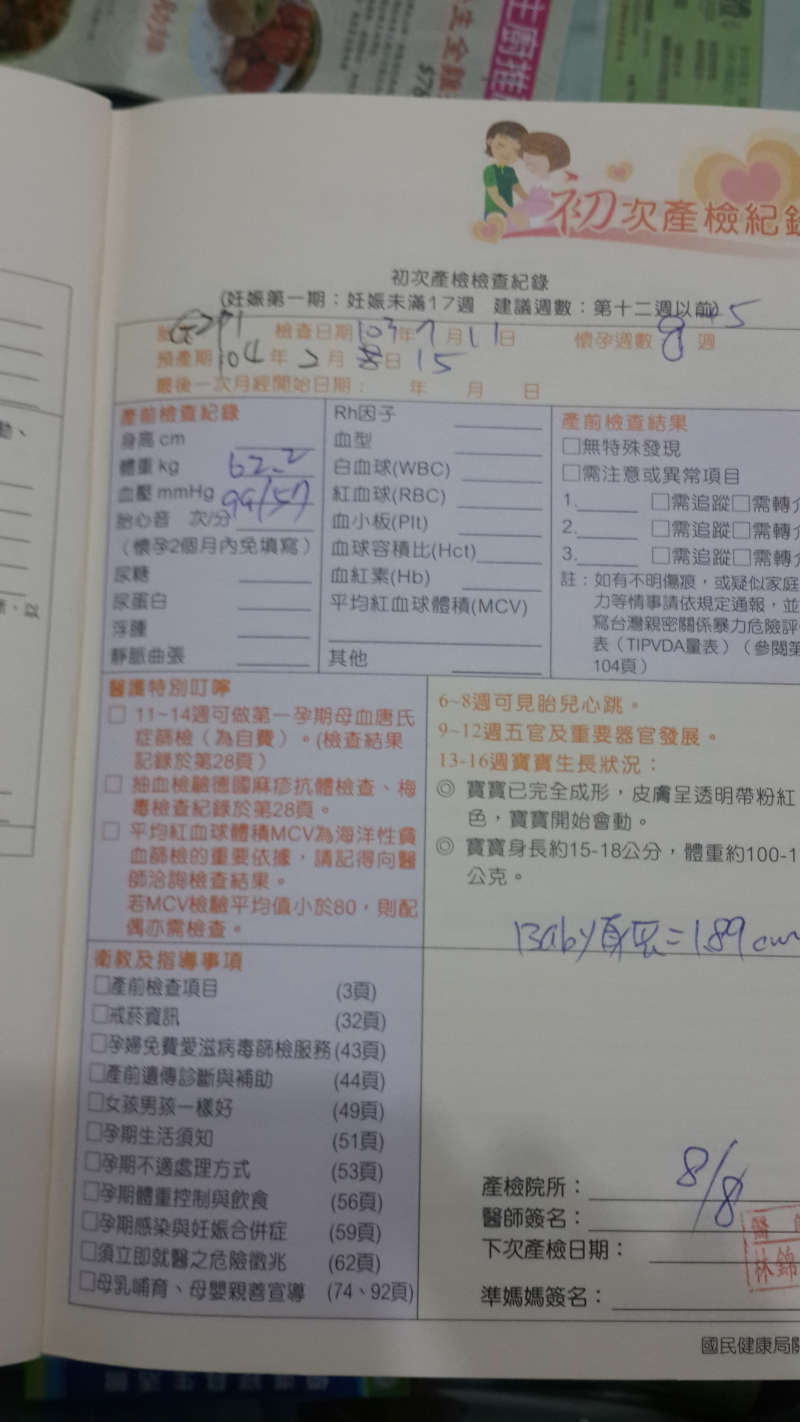 初次產檢紀錄
初次產檢檢查紀錄
(妊娠第一期：妊娠未滿17週 建議週數：第十二週以前)
G2P1 檢查日期103年7月11日 懷孕週數 8+5 週
預產期104年2月 日15
最後一次月經開始日期： 年 月 日
產前檢查紀錄
身高 cm
體重 kg 62.2
血壓 mmHg 99/57
胎心音 次/分
（懷孕2個月內免填寫）
尿糖
尿蛋白
浮腫
靜脈曲張
Rh因子
血型
白血球(WBC)
紅血球(RBC)
血小板(Plt)
血球容積比(Hct)
血紅素(Hb)
平均紅血球體積(MCV)
其他
產前檢查結果
□無特殊發現
□需注意或異常項目
1. □需追蹤□需轉介
2. □需追蹤□需轉介
3. □需追蹤□需轉介
註：如有不明傷痕，或疑似家庭
力等情事請依規定通報，並
寫台灣親密關係暴力危險評
表（TIPVDA量表）（參閱第
104頁）
醫護特別叮嚀
□ 11~14週可做第一孕期母血唐氏
症篩檢（為自費）。(檢查結果
記錄於第28頁）
□ 抽血檢驗德國麻疹抗體檢查、梅
毒檢查紀錄於第28頁。
□ 平均紅血球體積MCV為海洋性貧
血篩檢的重要依據，請記得向醫
師洽詢檢查結果。
若MCV檢驗平均值小於80，則配
偶亦需檢查。
6~8週可見胎兒心跳。
9~12週五官及重要器官發展。
13-16週寶寶生長狀況：
◎ 寶寶已完全成形，皮膚呈透明帶粉紅
色，寶寶開始會動。
◎ 寶寶身長約15-18公分，體重約100-1
公克。
Baby身長=1.89cm
衛教及指導事項
□產前檢查項目 (3頁)
□戒菸資訊 (32頁)
□孕婦免費愛滋病毒篩檢服務(43頁)
□產前遺傳診斷與補助 (44頁)
□女孩男孩一樣好 (49頁)
□孕期生活須知 (51頁)
□孕期不適處理方式 (53頁)
□孕期體重控制與飲食 (56頁)
□孕期感染與妊娠合併症 (59頁)
□須立即就醫之危險徵兆 (62頁)
□母乳哺育、母嬰親善宣導 (74、92頁)
產檢院所：
醫師簽名：
8/8
下次產檢日期：
準媽媽簽名：
醫
林錦
國民健康局關